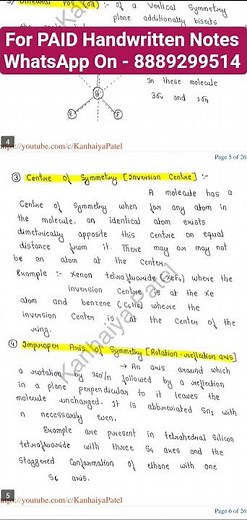 of a Vertical Symmetry
plane additionally bisects
For PAID Handwritten Notes
WhatsApp On - 8889299514
In these molecule
3σv and 1σh
4
http://youtube.com/c/KanhaiyaPatel
Page 5 of 26
③ Centre of Symmetry [Inversion Centre] :-
A molecule has a
Centre of Symmetry when for any atom in
the molecule, an identical atom exists
dimetrically opposite this centre an equal
distance from it. There may or may not
be an atom at the center.
Example :- Xenon tetrafluoride (XeF4) where the
inversion Centre is at the Xe
atom and benzene (C6H6) where the
inversion Center is at the Center of the
ring.
④ Improper Axis of Symmetry [Rotation-reflection axis]
→ An axis around which
a rotation by 360°/n followed by a reflection
in a plane perpendicular to it leaves the
molecule unchanged. It is abbreviated Sn, with
n necessarily even.
Example are present in tetrahedral Silicon
tetrafluoride with three S4 axes and the
Staggered Conformation of ethane with one
S6 axis.
Kanhaiya Patel
5
http://youtube.com/c/KanhaiyaPatel
Page 6 of 26